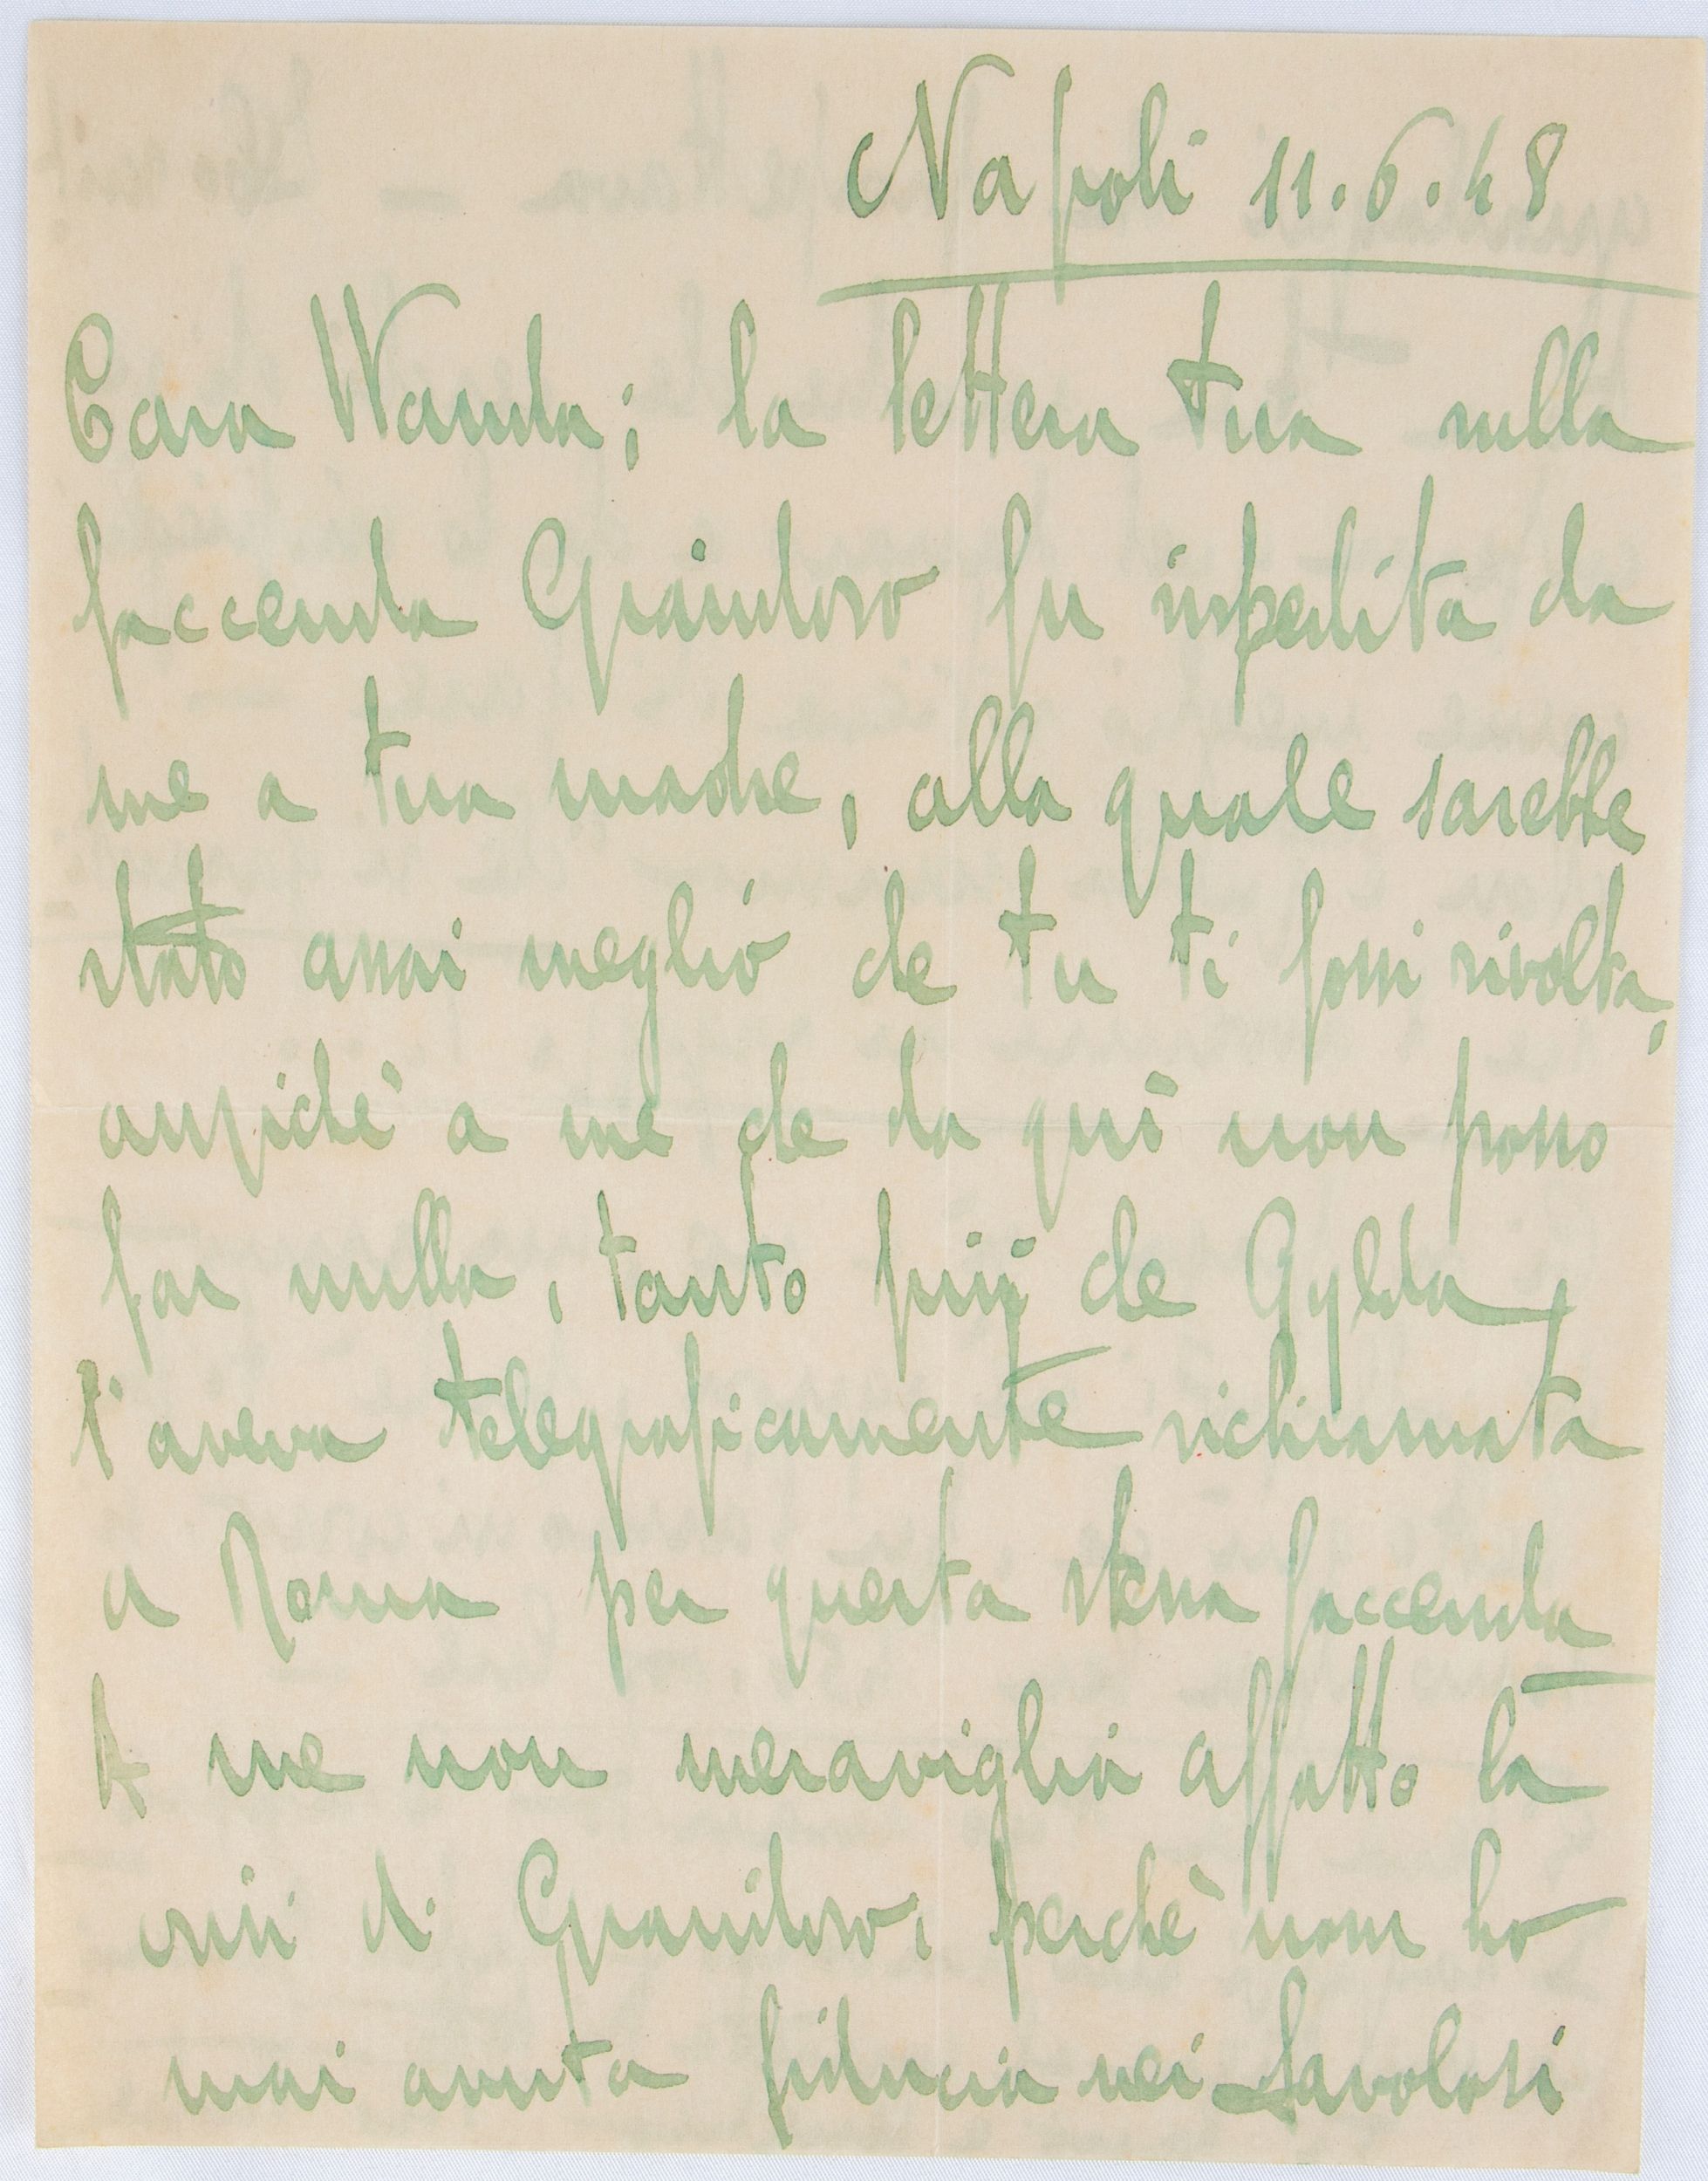 Napoli 11.6.48
Cara Wanda; la lettera tua sulla
faccenda Grandoso fu inspedita da
me a tua madre, alla quale sarebbe
stato assai meglio che tu ti fossi rivolta,
anziché a me che da quì non posso
far nulla, tanto più che Gylda
l'aveva telegraficamente richiamata
a Roma per questa stessa faccenda
A me non meraviglia affatto la
crisi di Grandoso, perchè non ho
mai avuta fiducia nei favolosi